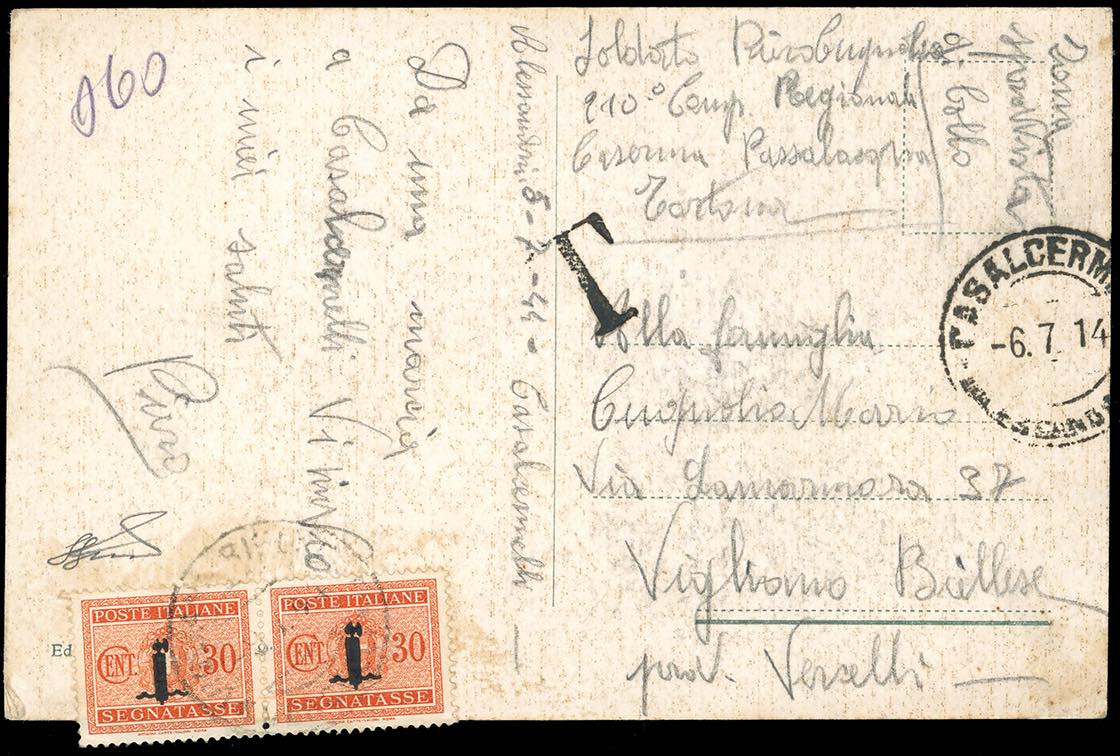 Soldato Piero Cugnolia
210° Comp Regionali
Caserma Passalacqua
Tortona
Posta
d. Collo
T
Alla famiglia
Cugnolia Mario
Via Lamarmora 37
Vigliano Biellese
prov. Vercelli
CASALCERM
-6.7 14
Alessandria 5-7-44- Casalcermelli
Da una marcia
a Casalcermelli Vi invio
i miei saluti
Piero
160
Ed
POSTE ITALIANE
CENT. 30
SEGNATASSE
POSTE ITALIANE
CENT. 30
SEGNATASSE